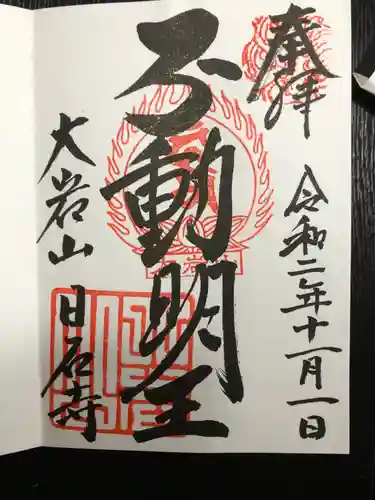 奉拝
令和二年十一月一日
不動明王
大岩山
日石寺